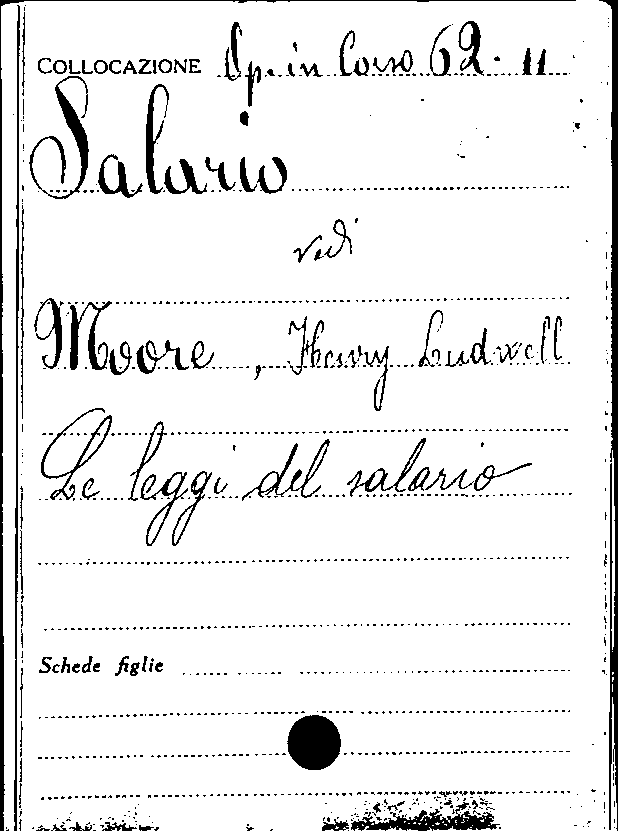 COLLOCAZIONE Op. in Corso 62. 11
Salario
vedi
Moore, Henry Ludwell
Le leggi del salario
Schede figlie